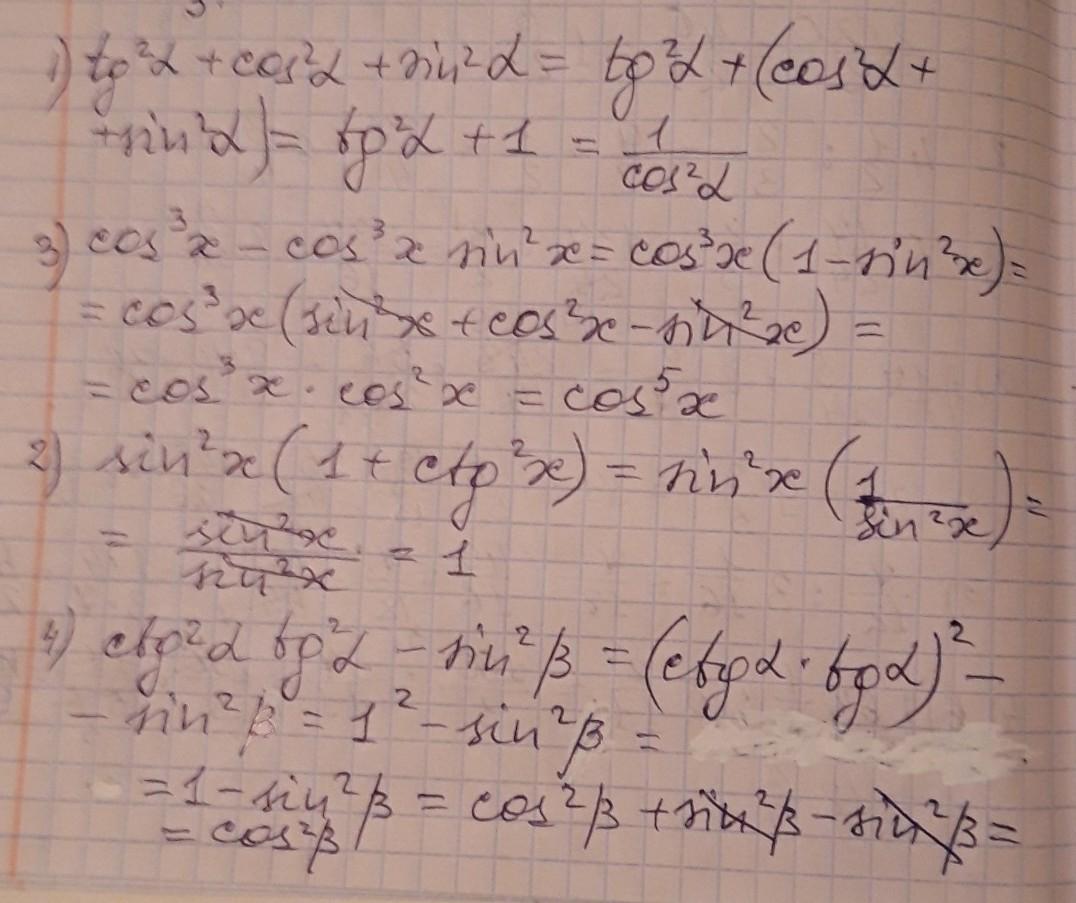 1) tg²α + cos²α + sin²α = tg²α + (cos²α +
+ sin²α) = tg²α + 1 = 1/cos²α
3) cos³x − cos³x sin²x = cos³x(1 − sin²x) =
= cos³x(sin²x + cos²x − sin²x) =
= cos³x · cos²x = cos⁵x
2) sin²x(1 + ctg²x) = sin²x(1/sin²x) =
= sin²x/sin²x = 1
4) ctg²α tg²α − sin²β = (ctgα · tgα)² −
− sin²β = 1² − sin²β =
= 1 − sin²β = cos²β + sin²β − sin²β =
= cos²β